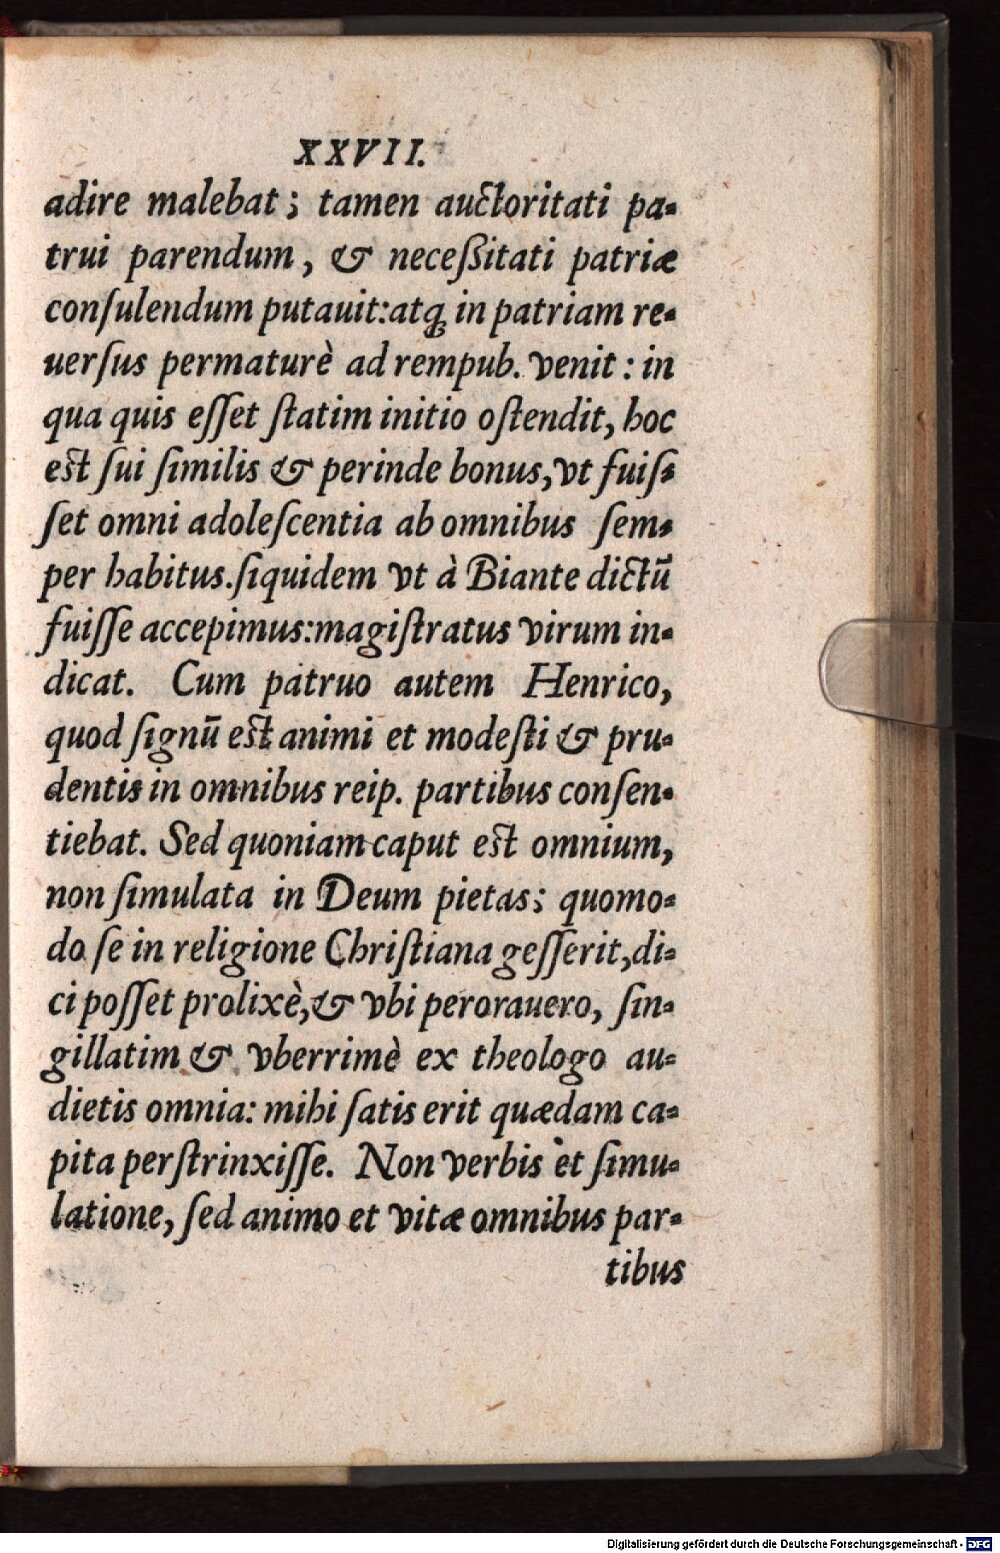 XXVII.
adire malebat; tamen auctoritati pa-
trui parendum, & neceßitati patriæ
conſulendum putauit: atq; in patriam re-
uerſus permaturè ad rempub. venit: in
qua quis eſſet ſtatim initio oſtendit, hoc
est ſui ſimilis & perinde bonus, vt fuiſ-
ſet omni adoleſcentia ab omnibus ſem-
per habitus. ſiquidem vt à Biante dictū
fuiſſe accepimus: magiſtratus virum in-
dicat. Cum patruo autem Henrico,
quod ſignū est animi et modeſti & pru-
dentis in omnibus reip. partibus conſen-
tiebat. Sed quoniam caput est omnium,
non ſimulata in Deum pietas; quomo-
do ſe in religione Chriſtiana geſſerit, di-
ci poſſet prolixè, & vbi perorauero, ſin-
gillatim & vberrimè ex theologo au-
dietis omnia: mihi ſatis erit quædam ca-
pita perſtrinxiſſe. Non verbis et ſimu-
latione, ſed animo et vitæ omnibus par-
tibus
Digitalisierung gefördert durch die Deutsche Forschungsgemeinschaft - DFG